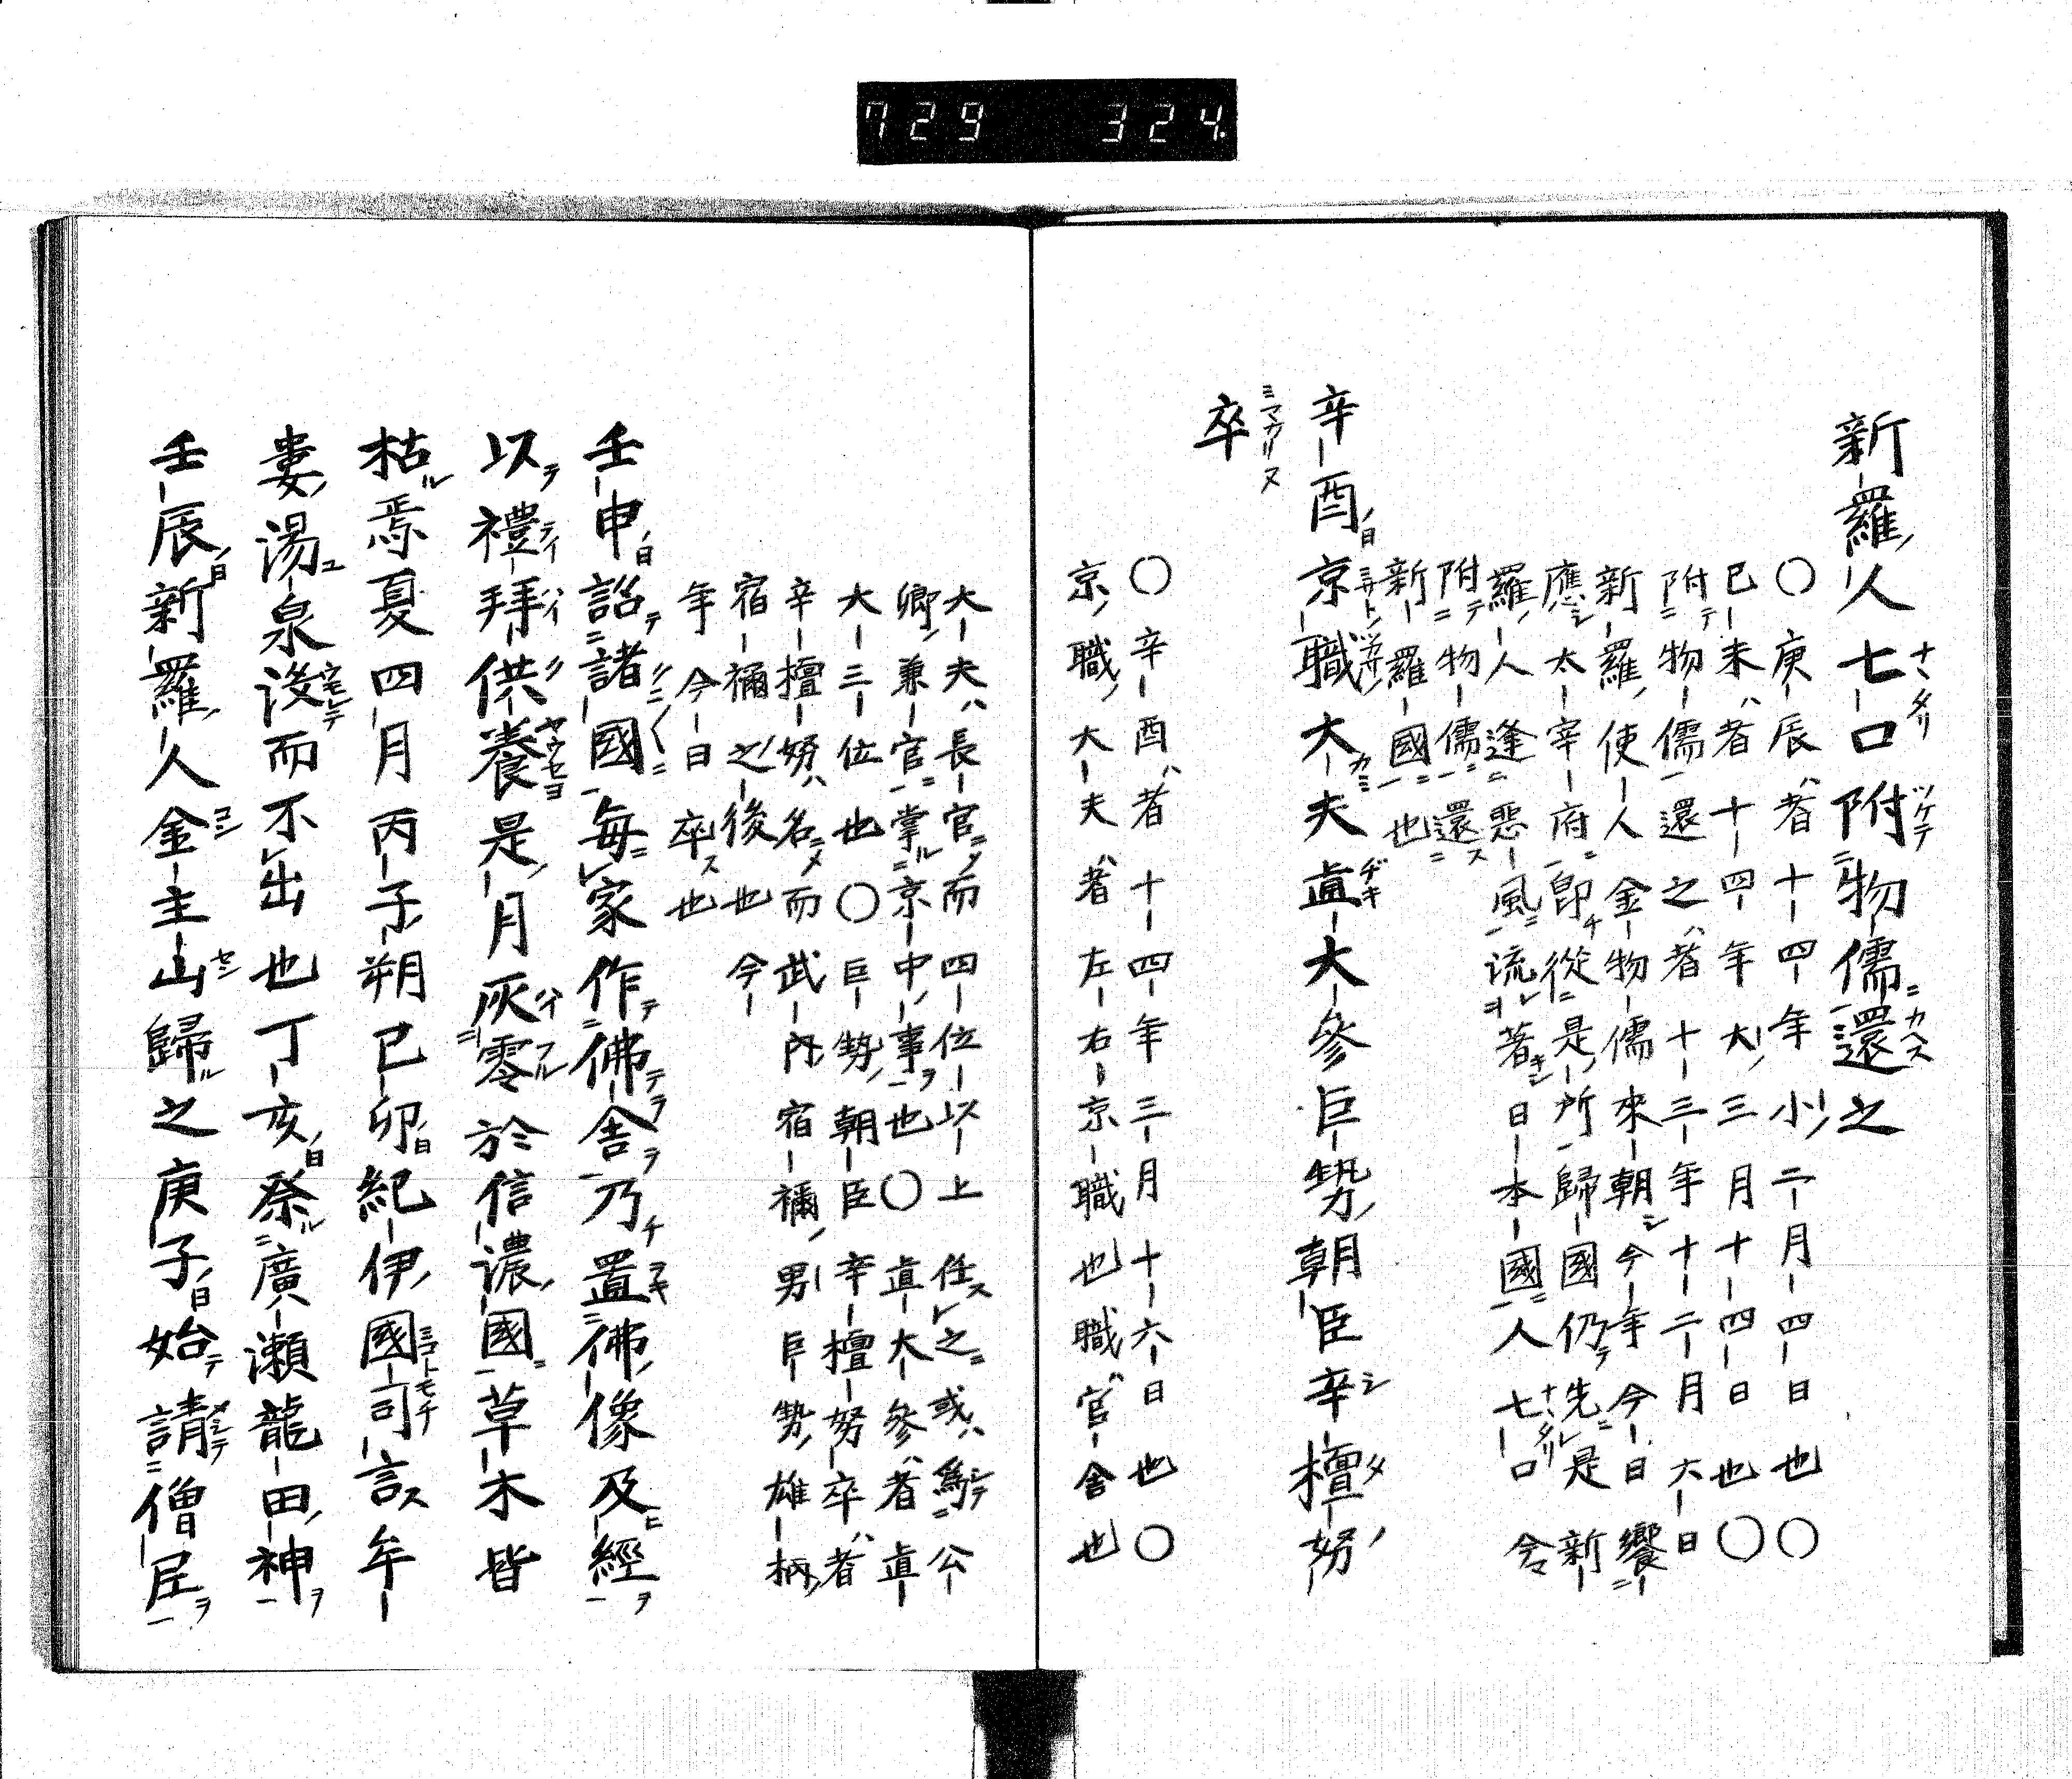 729 324.
新羅人七口附物儒還之
〇庚辰者十四年小二月四日也〇
已未者十四年大三月十四日也〇
附物儒還之者十三年十二月六日
新羅使人金物儒來朝今年今日饗
應太宰府即從是所歸國仍先是新
羅人逢惡風流著日本國人七口令
附物儒還
新羅國也
辛酉京職大夫直大參巨勢朝臣辛檀努
卒
〇辛酉者十四年三月十六日也〇
京職大夫者左右京職也職官舍也
大夫長官而四位以上任之或爲公
卿兼官掌京中事也〇直大參者直
大三位也〇巨勢朝臣辛檀努卒者
辛檀努名而武内宿禰男巨勢雄柄
宿禰之後也今
年今日卒也
壬申詔諸國毎家作佛舎乃置佛像及經
以禮拜供養是月灰零於信濃國草木皆
枯焉夏四月丙子朔已卯紀伊國司言牟
婁湯泉沒而不出也丁亥祭廣瀬龍田神
壬辰新羅人金主山歸之庚子始請僧尼